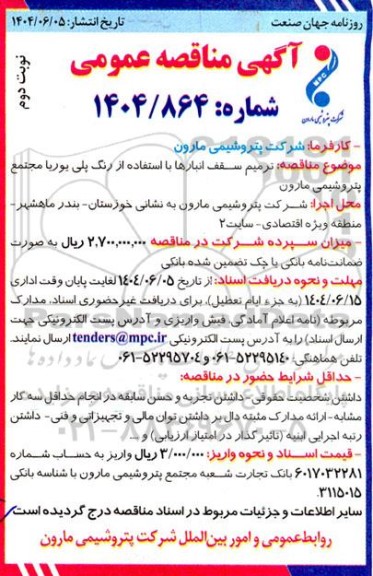 روزنامه جهان صنعت
تاریخ انتشار: ۱۴۰۴/۰۶/۰۵
نوبت دوم
آگهی مناقصه عمومی
شماره: ۱۴۰۴/۸۶۴
MPC
شرکت پتروشیمی مارون
- کارفرما: شرکت پتروشیمی مارون
موضوع مناقصه: ترمیم سقف انبارها با استفاده از رنگ پلی یوریا مجتمع
پتروشیمی مارون
محل اجرا: شرکت پتروشیمی مارون به نشانی خوزستان- بندر ماهشهر-
منطقه ویژه اقتصادی- سایت۲
- میزان سپرده شرکت در مناقصه ۲,۷۰۰,۰۰۰,۰۰۰ ریال به صورت
ضمانت‌نامه بانکی یا چک تضمین شده بانکی
مهلت و نحوه دریافت اسناد: از تاریخ ۱۴۰۴/۰۶/۰۵ لغایت پایان وقت اداری
۱۴۰۴/۰۶/۱۵ (به جزء ایام تعطیل)، برای دریافت غیرحضوری اسناد، مدارک
مربوطه (نامه اعلام آمادگی، فیش واریزی و آدرس پست الکترونیکی جهت
ارسال اسناد) را به آدرس پست الکترونیکی tenders@mpc.ir ارسال نمایند.
تلفن هماهنگی: ۵۲۲۹۵۱۴۰-۰۶۱ و ۵۲۲۹۵۷۰۴-۰۶۱
- حداقل شرایط حضور در مناقصه:
داشتن شخصیت حقوقی- داشتن تجربه و حسن سابقه در انجام حداقل سه کار
مشابه- ارائه مدارک مثبته دال بر داشتن توان مالی و تجهیزاتی و فنی- داشتن
رتبه اجرایی ابنیه (تاثیر گذار در امتیاز ارزیابی) و ...
- قیمت اسناد و نحوه واریز: ۳/۰۰۰/۰۰۰ ریال واریز به حساب شماره
۶۰۱۷۰۳۲۲۸۱ بانک تجارت شعبه مجتمع پتروشیمی مارون با شناسه بانکی
۳۱۱۵۰۱۵.
سایر اطلاعات و جزئیات مربوط در اسناد مناقصه درج گردیده است.
روابط‌عمومی و امور بین‌الملل شرکت پتروشیمی مارون